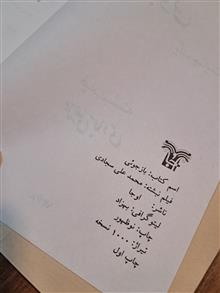 اسم کتاب: بازجوئی
فیلم نوشته: محمد علی سجادی
ناشر: اوجا
لیتوگرافی: بهزاد
چاپ: نوظهور
تیراژ: ۱۰۰۰ نسخه
چاپ اول